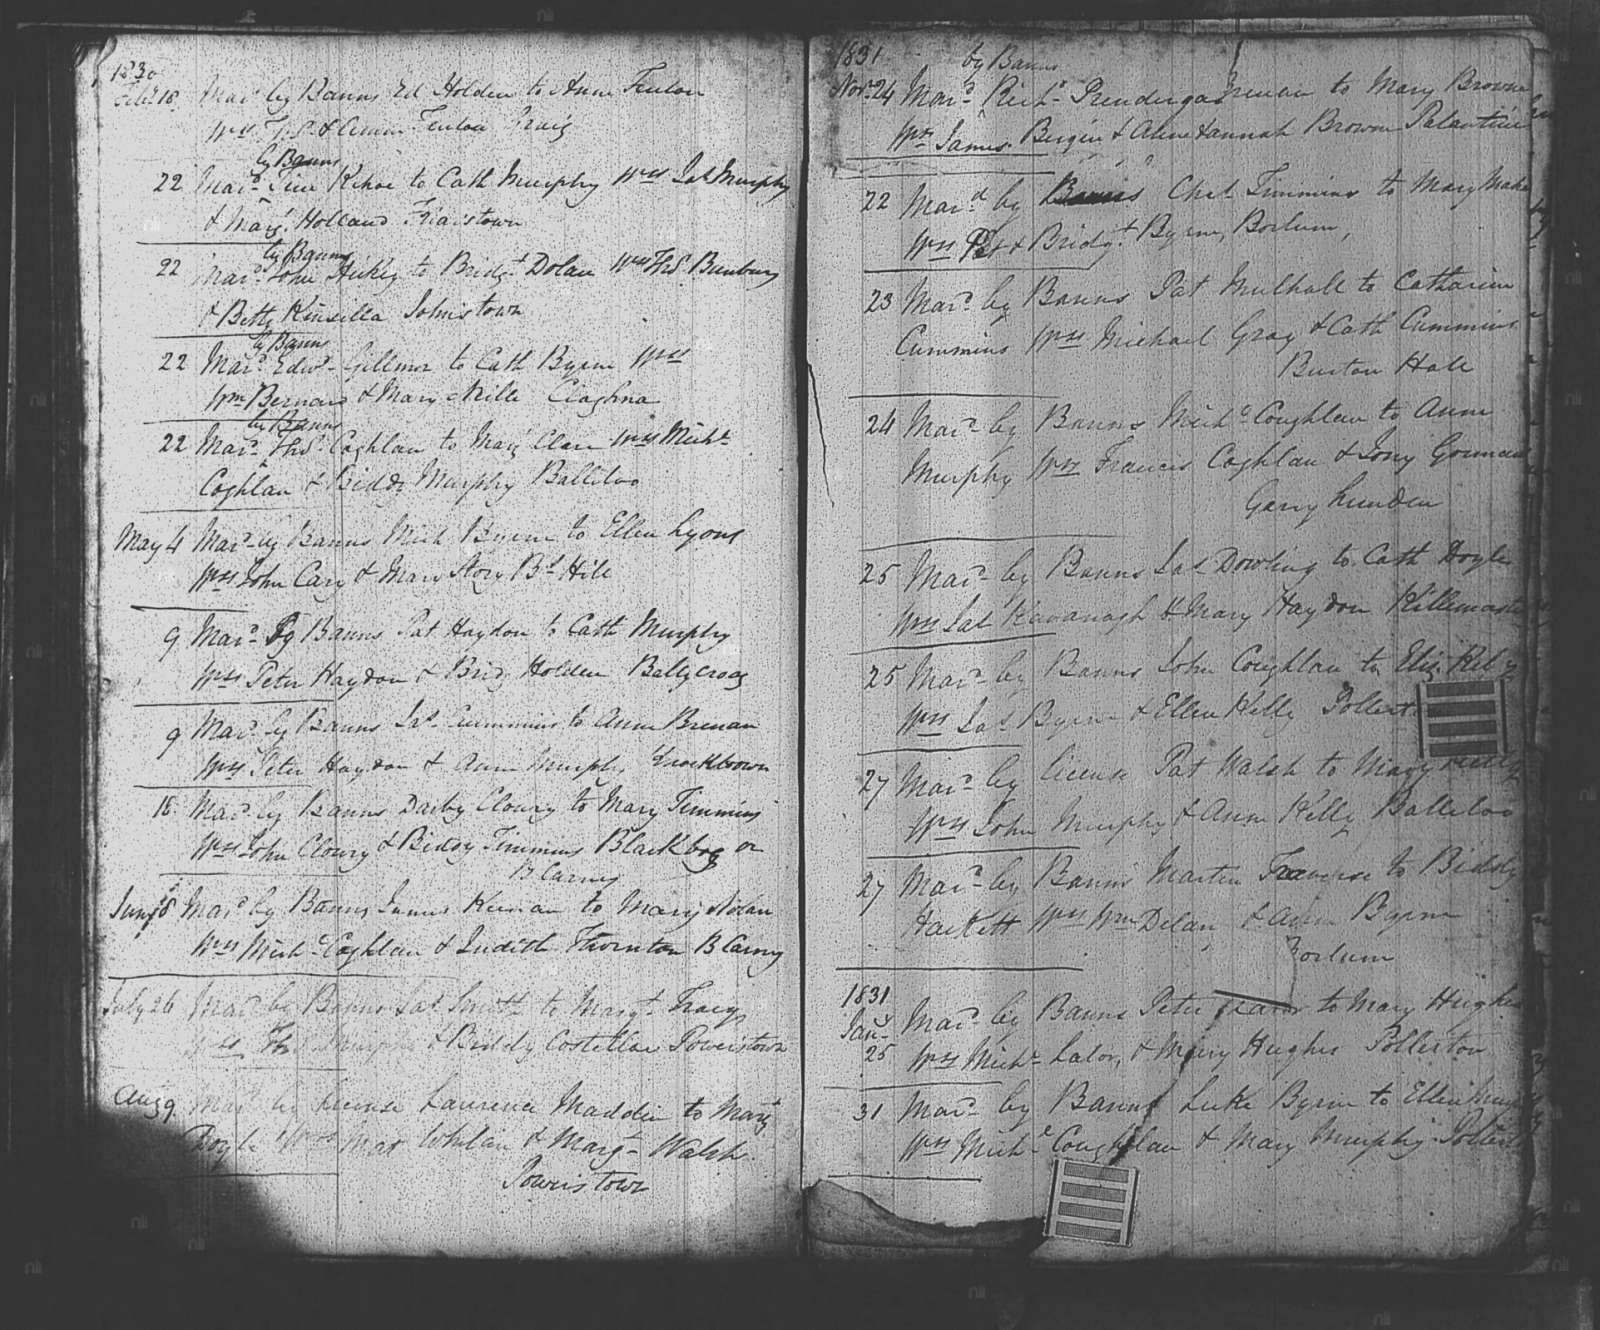 1830
Feb. 18 Mard. by Banns Ed Holden to Anne Fenlon
Wss & Fenlon Craig
by Banns
22 Mard. Tim Kehoe to Cath Murphy Wss Jas Murphy
& Marg. Holland Friarstown
by Banns
22 Mard. John Hickey to Bridgt Dolan Wss Thos Bunbury
& Betty Kinsella Johnstown
by Banns
22 Mard. Edwd. Gillmor to Cath Byrne Wss
Wm Bernard & Mary Mille
by Banns
22 Mard. Thos. Coghlan to Mary Clare Wss Michl.
Coghlan & Biddy Murphy Balliloo
May 4 Mard. by Banns Mich Byrne to Ellen Lyons
Wss John Cary & Mary Story Bs. Hill
9 Mard. By Banns Pat Haydon to Cath Murphy
Wss Peter Haydon & Brid Holden Ballycroag
9 Mard. by Banns Jas. Cummins to Anne Brenan
Wss Peter Haydon & Ann Murphy Knockbrown
18 Mard. by Banns Darby Cloury to Mary Timmins
Wss John Cloury & Biddy Timmins Blackbog or
B Carney
June 8 Mard. by Banns James Keenan to Mary Nolan
Wss Michl. Coghlan & Judith Thornton B Carney
July 26 Mard. by Banns Jas Smith to Margt. Tracy
Wss Thos Murphy & Biddy Costelloe Powerstown
Aug 9 Mard. by License Laurence Madden to Mary
Boyle Wss Mat Whelan & Margt. Walsh
Powerstown
1831
by Banns
Novr. 24 Mard. Richd. Prendergast to Mary Browne
Wss James Bergin & Browne Palantine
22 Mard. by Banns Chas. Timmins to Mary
Wss Pat & Bridgt. Byrne, Borlum,
23 Mard. by Banns Pat Mulhall to Catharine
Cummins Wss Michael Gray & Cath Cummins
Burton Hall
24 Mard. by Banns Michl. Coughlan to Anne
Murphy Wss Francis Coghlan & Jony Gorman
Garry Lunden
25 Mard. by Banns Jas. Dowling to Cath Doyle
Wss Jas Kavanagh & Mary Haydon
25 Mard. by Banns John Coughlan to Eliz.
Wss Jas. Byrne & Ellen Kelly
27 Mard. by License Pat Walsh to Mary Kelly
Wss John Murphy & Ann Kelly Balliloo
27 Mard. by Banns Martin Traverse to Biddy
Hackett Wss Wm Delan & Ann Byrne
Borlum
1831
Jany. Mard. by Banns Peter Lalor to Mary Hughes
25 Wss Michl. Lalor, & Mary Hughes Pollerton
31 Mard. by Banns Luke Byrne to Ellen
Wss Michl. Coughlan & Mary Murphy